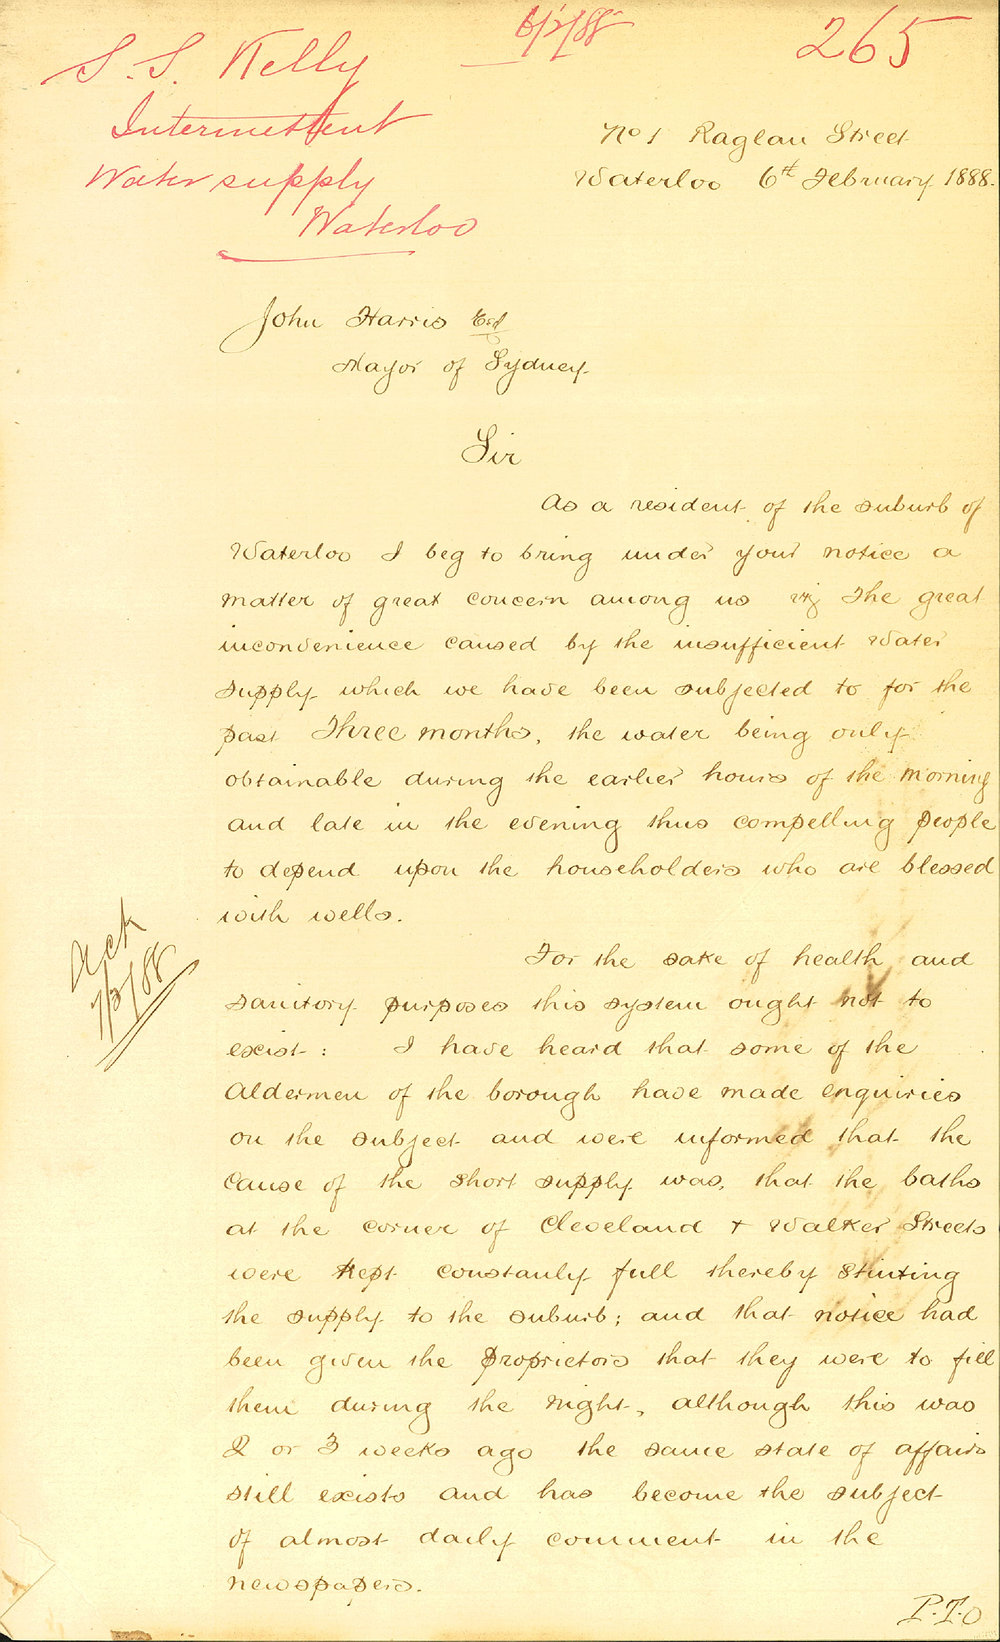 6/2/88
265
S. S. Kelly
Intermittent
Water supply
Waterloo
No 1 Raglan Street
Waterloo 6th February 1888.
John Harris Esq
Mayor of Sydney
Sir
As a resident of the suburb of
Waterloo I beg to bring under your notice a
matter of great concern among us viz The great
inconvenience caused by the insufficient Water
supply which we have been subjected to for the
past Three months, the water being only
obtainable during the earlier hours of the morning
and late in the evening thus compelling people
to depend upon the householders who are blessed
with wells.
For the sake of health and
sanitory purposes this system ought not to
exist: I have heard that some of the
Aldermen of the borough have made enquiries
on the subject and were informed that the
cause of the short supply was, that the baths
at the corner of Cleveland + Walker Streets
were kept constanly full thereby stinting
the supply to the suburb; and that notice had
been given the proprietors that they were to fill
them during the night, although this was
2 or 3 weeks ago the same state of affairs
still exists and has become the subject
of almost daily comment in the
newspapers.
Ack
7/2/88
P.T.O